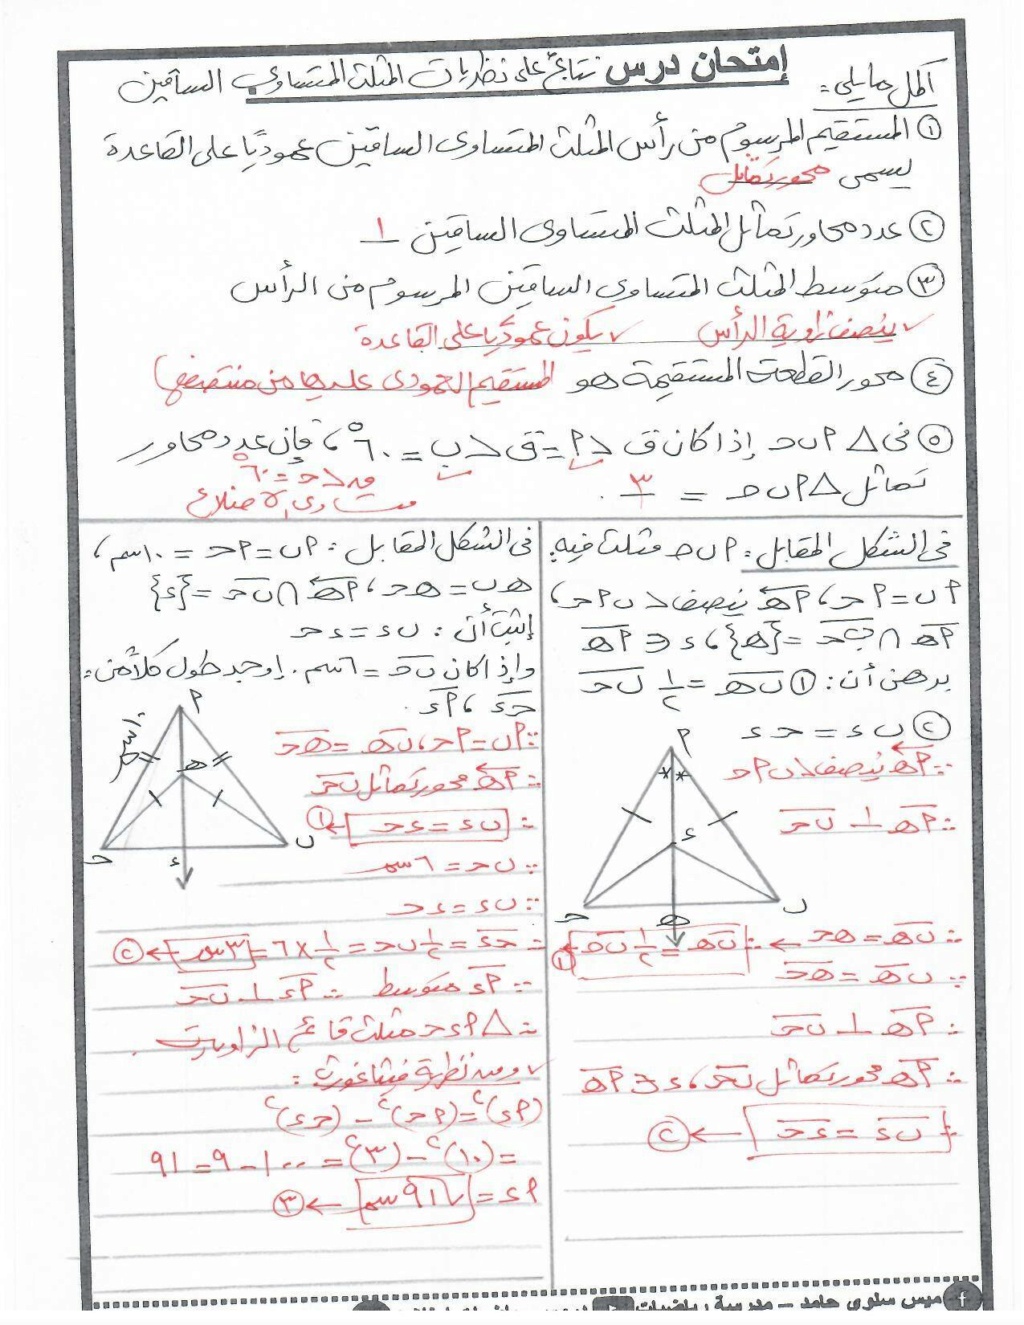 إمتحان درس نتائج على نظريات المثلث المتساوى الساقين
أكمل مايلى :
① المستقيم المرسوم من رأس المثلث المتساوى الساقين عموديًا على القاعدة
يسمى محور تماثل
② عدد محاور تماثل المثلث المتساوى الساقين ١
③ متوسط المثلث المتساوى الساقين المرسوم من الرأس
✓ ينصف زاوية الرأس ✓ يكون عموديًا على القاعدة
④ محور القطعة المستقيمة هو المستقيم العمودى عليها من منتصفها
⑤ فى △ ٩ ب حـ إذا كان ق ∠ ٩ = ق ∠ ب = ٦٠°، فإن عدد محاور
تماثل △ ٩ ب حـ = ٣ .
ق ∠ حـ = ٦٠°
متساوى الأضلاع
فى الشكل المقابل : ٩ ب حـ مثلث فيه
٩ ب = ٩ حـ ، ٩هـ ينصف ∠ ب ٩ حـ ،
٩هـ ∩ ب حـ = {هـ} ، ء ∈ ٩هـ
برهن أن : ① ب هـ = ١/٢ ب حـ
② ب ء = حـ ء
∵ ٩هـ ينصف ∠ ب ٩ حـ
∴ ٩هـ ⊥ ب حـ
٩
ء
حـ
هـ
ب
∴ ب هـ = هـ حـ ← ∴ ب هـ = ١/٢ ب حـ ← ①
∵ ب هـ = هـ حـ
∴ ٩هـ ⊥ ب حـ
∴ ٩هـ محور تماثل ب حـ ، ء ∈ ٩هـ
∴ ب ء = ء حـ ← ②
فى الشكل المقابل : ٩ ب = ٩ حـ = ١٠سم ،
هـ ب = هـ حـ ، ٩هـ ∩ ب حـ = {ء}
إثبت أن : ب ء = ء حـ
وإذا كان ب حـ = ٦سم . إوجد طول كلاً من :
حـ ء ، ٩ ء .
٩
١٠سم
هـ
حـ
ء
ب
∵ ٩ ب = ٩ حـ ، ب هـ = هـ حـ
∴ ٩هـ محور تماثل ب حـ
∴ ب ء = ء حـ ← ①
∵ ب حـ = ٦سم
∵ ب ء = ء حـ
∴ حـ ء = ١/٢ ب حـ = ١/٢ × ٦ = ٣سم ← ②
∵ ٩ ء متوسط ∴ ٩ ء ⊥ ب حـ
∴ △ ٩ ء حـ مثلث قائم الزاوية
✓ ومن نظرية فيثاغورث :
(٩ ء)² = (٩ حـ)² − (حـ ء)²
= (١٠)² − (٣)² = ١٠٠ − ٩ = ٩١
٩ ء = √٩١ سم ← ③
ميس سلوى حامد – مدرسة رياضيات